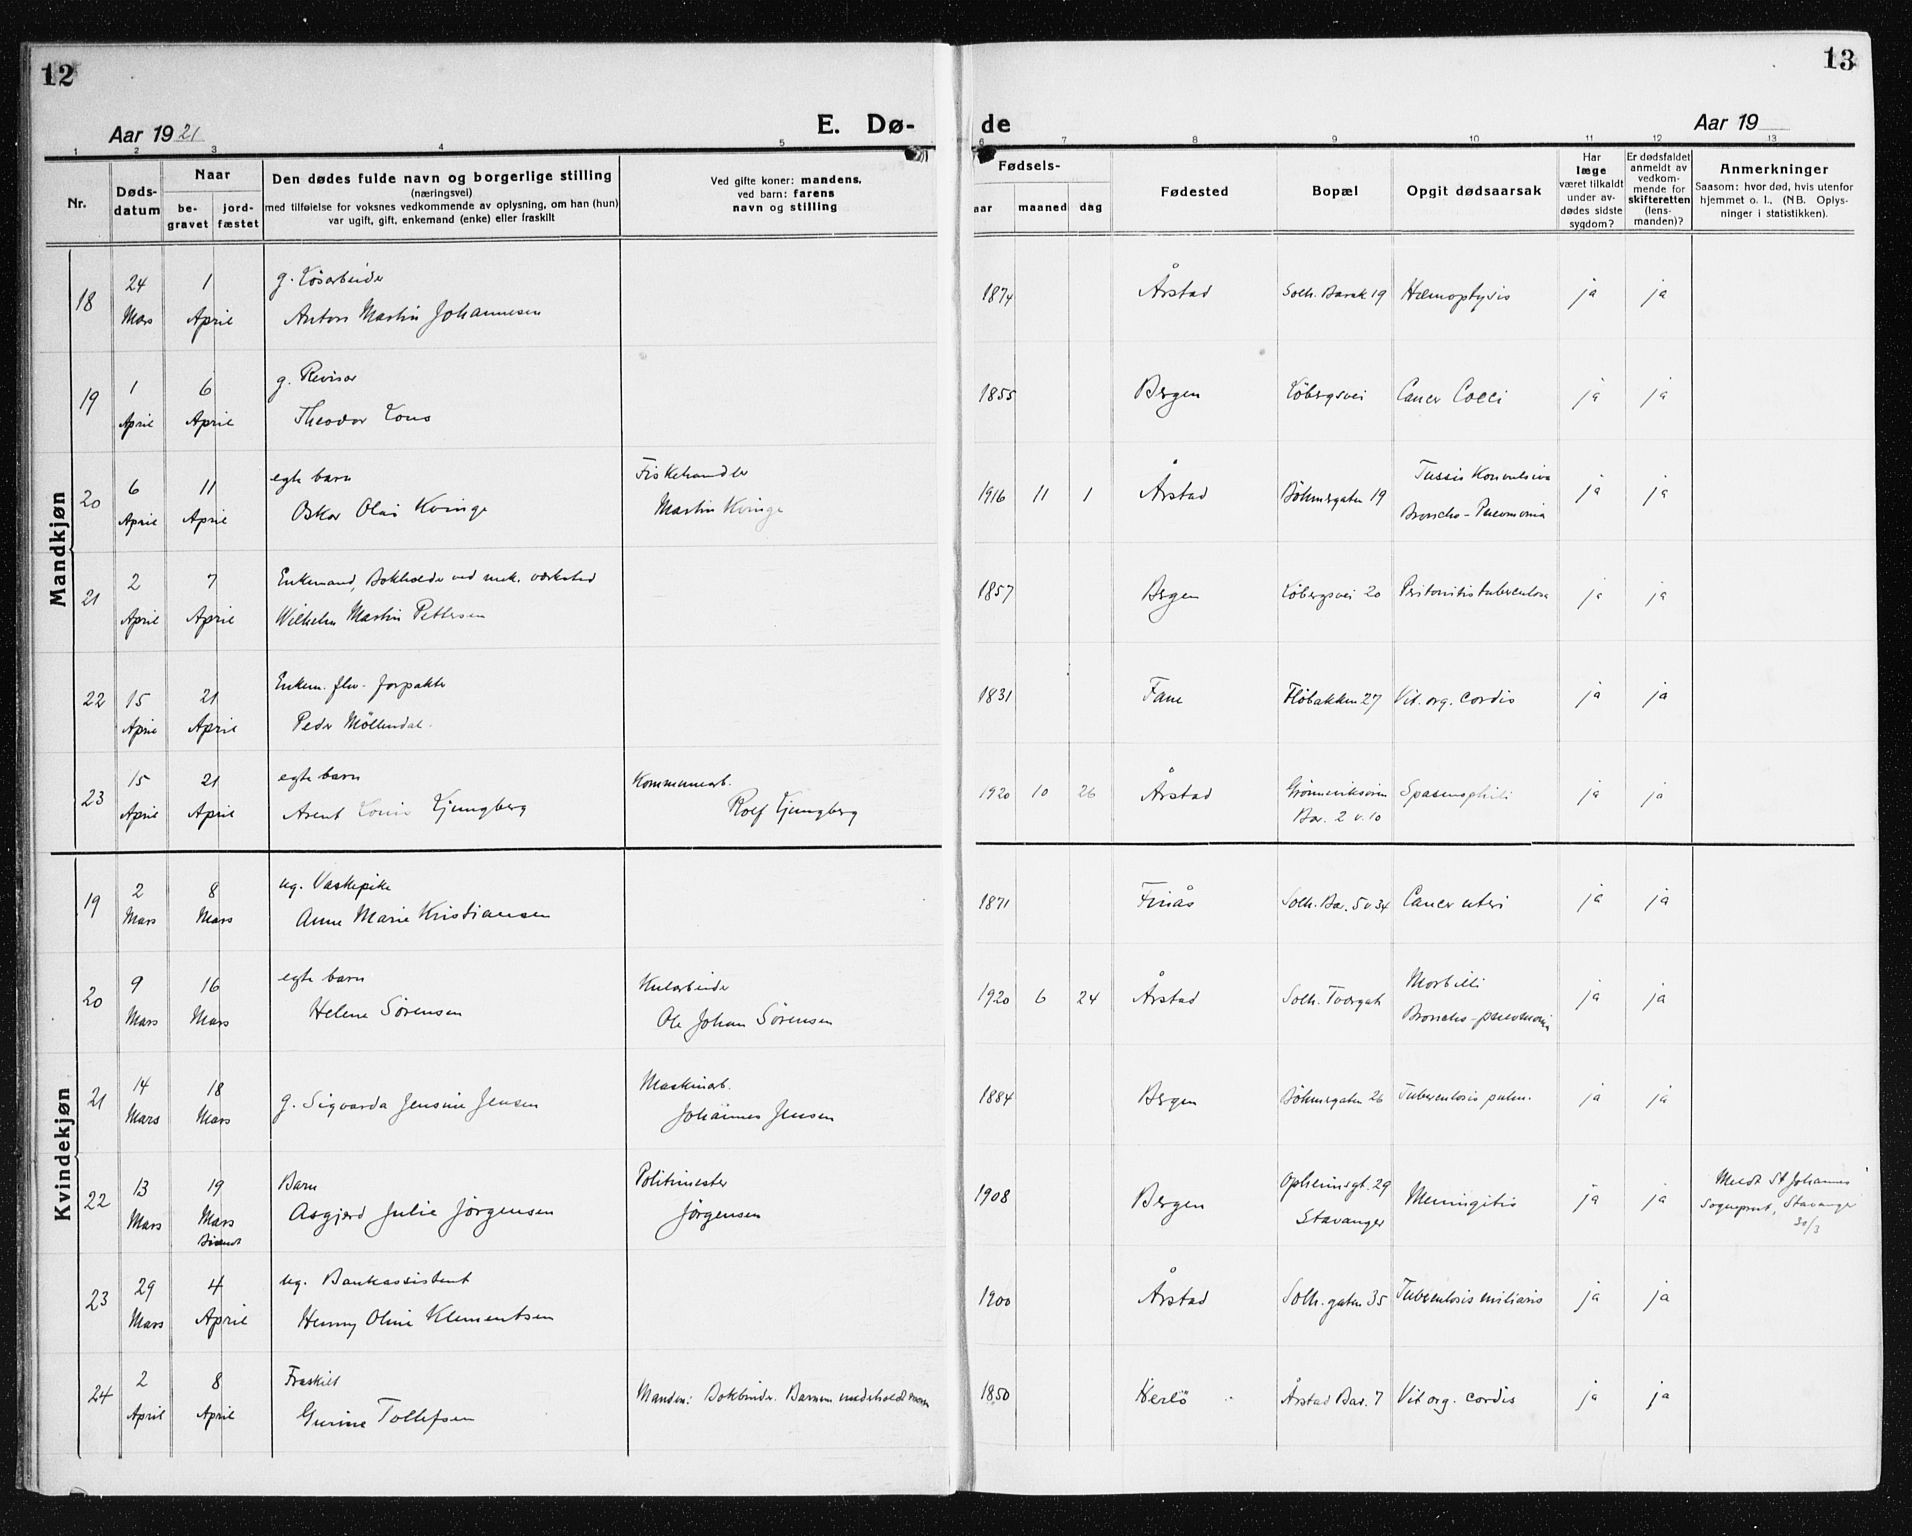 12
13
Aar 1921
E. Dø-
de
Aar 19
1 2 3 4 5 6 7 8 9 10 11 12 13
Nr.
Døds-
datum
Naar
be-
gravet
jord-
fæstet
Den dødes fulde navn og borgerlige stilling
(næringsvei)
med tilføielse for voksnes vedkommende av oplysning, om han (hun)
var ugift, gift, enkemand (enke) eller fraskilt
Ved gifte koner: mandens,
ved barn: farens
navn og stilling
Fødsels-
aar
maaned
dag
Fødested
Bopæl
Opgit dødsaarsak
Har
læge
været tilkaldt
under av-
dødes sidste
sygdom?
Er dødsfaldet
anmeldt av
vedkom-
mende for
skifteretten
(lens-
manden)?
Anmerkninger
Saasom: hvor død, hvis utenfor
hjemmet o. l., (NB. Oplys-
ninger i statistikken).
Mandkjøn
18 24 Mars 1 April g. Løsarbeider
Anton Martin Johannesen
1874 Årstad Solh. Barak 19 Hæmoptysis ja ja
19 1 April 6 April g. Revisor
Theodor Lous
1855 Bergen Løbergsvei Cancer Coeci ja ja
20 6 April 11 April egte barn
Oskar Olai Kvinge
Fiskehandler
Martin Kvinge
1916 11 1 Årstad Bøhmergaten 19 Tussis Konvulsiva
Broncho-Pneumonia ja ja
21 2 April 7 April Enkemand, Bokholder ved mek. værksted
Wilhelm Martin Pettersen
1857 Bergen Løbergsvei 20 Peritonitis tuberculosa ja ja
22 15 April 21 April Enkem. fhv. forpakter
Peder Møllendal.
1831 Fane Fløbakken 27 Vit. org. cordis ja ja
23 15 April 21 April egte barn
Arent Louis Ljungberg
Kommunearb.
Rolf Ljungberg
1920 10 26 Årstad
Bar. 2 v. 10 Spasmophili ja ja
Kvindekjøn
19 2 Mars 8 Mars ug. Vaskepike
Anne Marie Kristiansen
1871 Finås Solh. Bar. 5 v 34 Cancer uteri ja ja
20 9 Mars 16 Mars egte barn
Helene Sørensen
Kularbeider
Ole Johan Sørensen
1920 6 24 Årstad Solh. Tvergate Morbilli
Broncho-pneumonia ja ja
21 14 Mars 18 Mars g. Sigvarda Jensine Jensen
Maskinarb.
Johannes Jensen
1884 Bergen Bøhmergaten 26 Tuberculosis pulm. ja ja
22 13 Mars 19 Mars
Barn
Asgjerd Julie Jørgensen
Politimester
Jørgensen
1908 Bergen Opheimsgt. 29
Stavanger Meningitis ja ja
Meldt St Johannes
Sogneprest, Stavanger
30/3
23 29 Mars 4 April ug. Bankassistent
Henny Oline Klementsen
1900 Årstad Solh. gaten 35 Tuberculosis miliaris ja ja
24 2 April 8 April Fraskilt
Gurine Tollefsen
Manden: Bokbinder. Barnen underholdt moren
1850 Herlö Årstad Bar. 7 Vit org. cordis ja ja